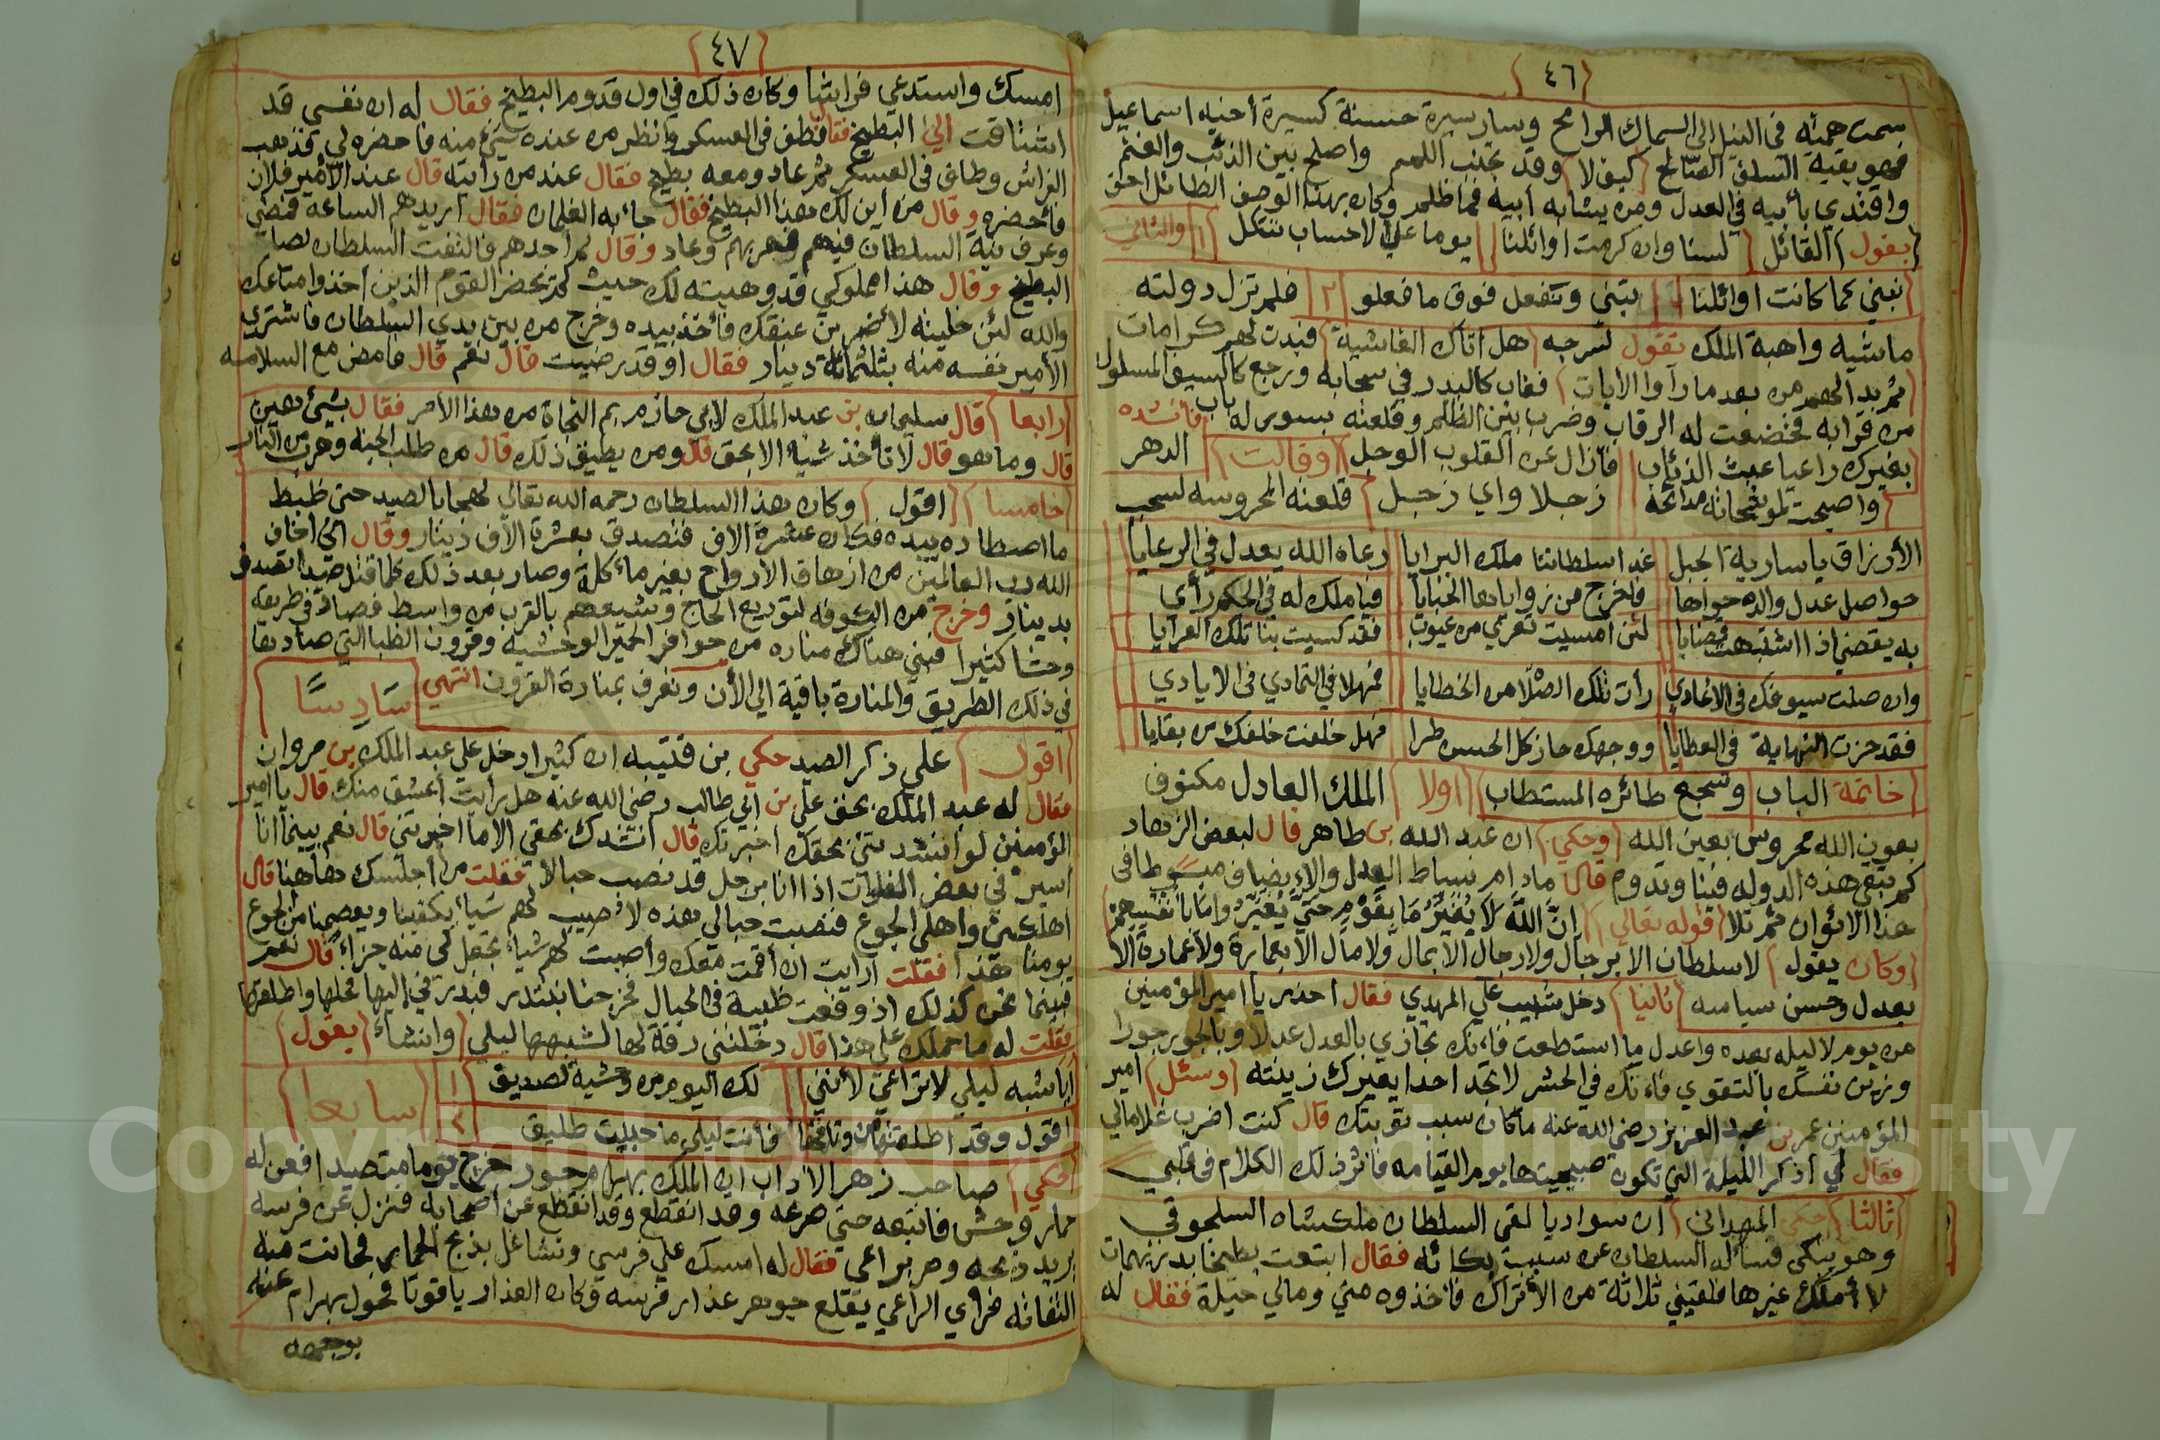 ٤٦
سمت همته في النبل الى السماك الرامح وسار سيرة حسنة كسيرة أخيه اسماعيل
فهو بقية السلف الصالح كيف لا وقد تجنب اللمم واصلح بين الذئب والغنم
واقتدي بأبيه في العدل ومن يشابه أبيه فما ظلم وكان بهذا الوصف الطائل احق
بقول القائل لسنا وان كرمت اوائلنا يوما علي الاحساب نتكل ١ والثاني
نبني كما كانت اوائلنا تبني وتفعل فوق ما فعلو ٢ فلم تزل دولته
ماشيه واهبة الملك تقول لسرجه هل اتاك الغاشية فبدت لهم كرامات
ثم بدا لهم من بعد ما رآوا الايات فغاب كالبدر في سحابه ورجع كالسيف المسلول
من قرابه فخضعت له الرقاب وضرب بين الظلم وقلعته بسور له باب فأنشده
بغيرك راعيا عبث الذئاب فأزال عن القلوب الوجل وقالت الدهر
واصبحت تلو بلمحاته مدائحه زجلا واي زجل قلعته المحروسه لسحب
الأرزاق يا سارية الجبل غدا سلطاننا ملك البرايا رعاه الله يعدل في الرعايا
حواصل عدل والده حواها فاخرج من زوايادها الخبايا فيا ملك له في الحكم رأي
به يقضي اذا اشتبهت قضايا لئن أمست تعري من عيوب فقد كسيت بنا تلك العرايا
وان صلت سيوفك في الاعادي رأت تلك الصلا من الخطايا فمهلا في التمادي في الايادي
فقد حزت النهاية في العطايا ووجهك حاز كل الحسن طرا فهل خلفت خلفك من بقايا
خاتمة الباب وسجع طائره المستطاب اولا الملك العادل مكنوف
بعون الله محروس بعين الله وحكي ان عبد الله بن طاهر قال لبعض الزهاد
كم تبقي هذه الدوله فينا وتدوم قال مادام بساط العدل والإنصاف مبسوطا في
هذا الائوان ثم تلا قوله تعالي إنَّ اللَّهَ لَا يُغَيِّرُ مَا بِقَوْمٍ حَتَّى يُغَيِّرُوا مَا بِأَنْفُسِهِمْ
وكان يقول لا سلطان الا برجال ولا رجال الا بمال ولا مال الا بعمارة ولا عمارة الا
بعدل وحسن سياسه ثانيا دخل شبيب علي المهدي فقال احذر يا امير المؤمنين
من يوم لا ليله بعده واعدل ما استطعت فانك تجازي بالعدل عدلا وبالجور جورا
وزين نفسك بالتقوي فانك في الحشر لا تجد احدا يعيرك زينته وسئل امير
المؤمنين عمر بن عبد العزيز رضي الله عنه ما كان سبب توبتك قال كنت اضرب غلامالي
فقال لي اذكر الليلة التي تكون صبيحتها يوم القيامه فاثر ذلك الكلام في قلبي
ثالثا حكي الهمداني ان سواديا لقي السلطان ملكشاه السلجوقي
وهو يبكي فسأله السلطان عن سبب بكائه فقال ابتعت بطيخا بدريهمات
لا أملك غيرها فلقيني ثلاثة من الأتراك فأخذوه مني ومالي حيلة فقال له
٤٧
امسك واستدعي فراشا وكان ذلك في اول قدوم البطيخ فقال له ان نفسي قد
اشتاقت الي البطيخ فطف في العسكر وانظر من عنده شئ منه فاحضره لي فذهب
الفراش وطاف في العسكر ثم عاد ومعه بطيخ فقال عند من رأيته قال عند الأمير فلان
فأحضره وقال من أين لك هذا البطيخ فقال جاء به الغلمان فقال اريدهم الساعة فمضي
وعرف نية السلطان فيهم فهربهم وعاد وقال لم أجدهم فالتفت السلطان لصاحب
البطيخ وقال هذا مملوكي قد وهبته لك حيث لم يحضر القوم الذين أخذوا متاعك
والله لئن خليته لأضربن عنقك فأخذ بيده وخرج من بين يدي السلطان فاشتري
الأمير نفسه منه بثلثمائة دينار فقال او قد رضيت قال نعم قال فامض مع السلامه
رابعا قال سليمان بن عبد الملك لابي حازم بم النجاة من هذا الأمر فقال بشئ هين
قال وما هو قال لا تأخذ شيئا الا بحق قال ومن يطيق ذلك قال من طلب الجنة وهرب من النار
خامسا اقول وكان هذا السلطان رحمه الله تعالي لهجا بالصيد حتي ضبط
ما اصطاده بيده فكان عشرة الاف فتصدق بعشرة الاف دينار وقال اني اخاف
الله رب العالمين من ازهاق الأرواح بغير مأكلة وصار بعد ذلك كلما قتل صيدا تصدق
بدينار وخرج من الكوفه لتوديع الحاج وشيعهم بالقرب من واسط فصاد في طريقه
وحشا كثيرا فبني هناك مناره من حوافر الحمير الوحشيه وقرون الظبا التي صادها
في ذلك الطريق والمنارة باقية الي الأن وتعرف بمنارة القرون انتهي سَادِسًا
اقول علي ذكر الصيد حكي بن قتيبه ان كثيرا دخل علي عبد الملك بن مروان
فقال له عبد الملك بحق علي بن ابي طالب رضي الله عنه هل رأيت أعشق منك قال يا امير
المؤمنين لو انشدتني بحقك اخبرتك قال انشدك بحقي الا ما اخبرتني قال نعم بينما أنا
اسير في بعض الفلوات اذا انا برجل قد نصب حبالا فقلت ما أجلسك هاهنا قال
اهلكني واهلي الجوع فنصبت حبالي هذه لأصيب لهم شيا يكفينا ويعصمنا من الجوع
يومنا هذا فقلت أرايت ان أقمت معك وأصبت لهم شيا تجعل لي منه جزاءً قال نعم
فبينما نحن كذلك اذ وقعت ظبية في الحبال فخرجنا نبتدر فبدرني إليها فحلها واطلقها
فقلت له ما حملك علي هذا قال دخلتني رقة لها لشبهها ليلي وانشأ يقول
ايا شبه ليلي لا تراعي لأنني لك اليوم من وحشية لصديق ١ سابعا
اقول وقد اطلقتها من وثاقها فأنت ليلي ما حييت طليق ٢
حكي صاحب زهر الآداب ان الملك بهرام جور خرج يوما متصيدا فعن له
حمار وحش فاتبعه حتي صرعه وقد انقطع عن اصحابه فنزل عن فرسه
يريد ذبحه ومر براعي فقال له امسك علي فرسي وتشاغل بذبح الحمار فحانت منه
التفاته فراي الراعي يقلع جوهر عذار فرسه وكان العذار ياقوتا فحول بهرام عنه
بوجهه